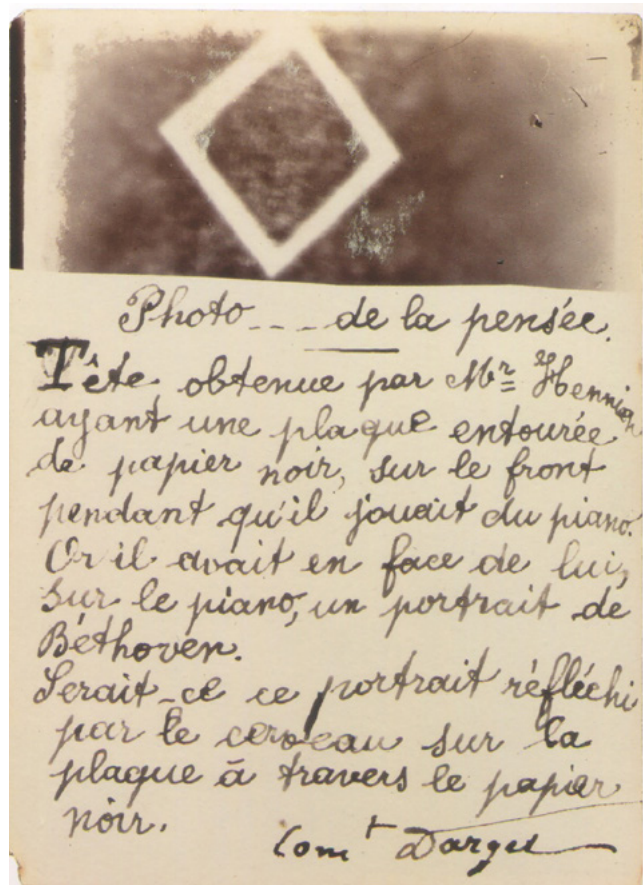 Photo - - - de la pensée.
Tête obtenue par Mr Hennion
ayant une plaque entourée
de papier noir, sur le front
pendant qu'il jouait du piano.
Or il avait en face de lui,
sur le piano, un portrait de
Béthoven.
Serait-ce ce portrait réfléchi
par le cerveau sur la
plaque à travers le papier
noir.
Comt Darget